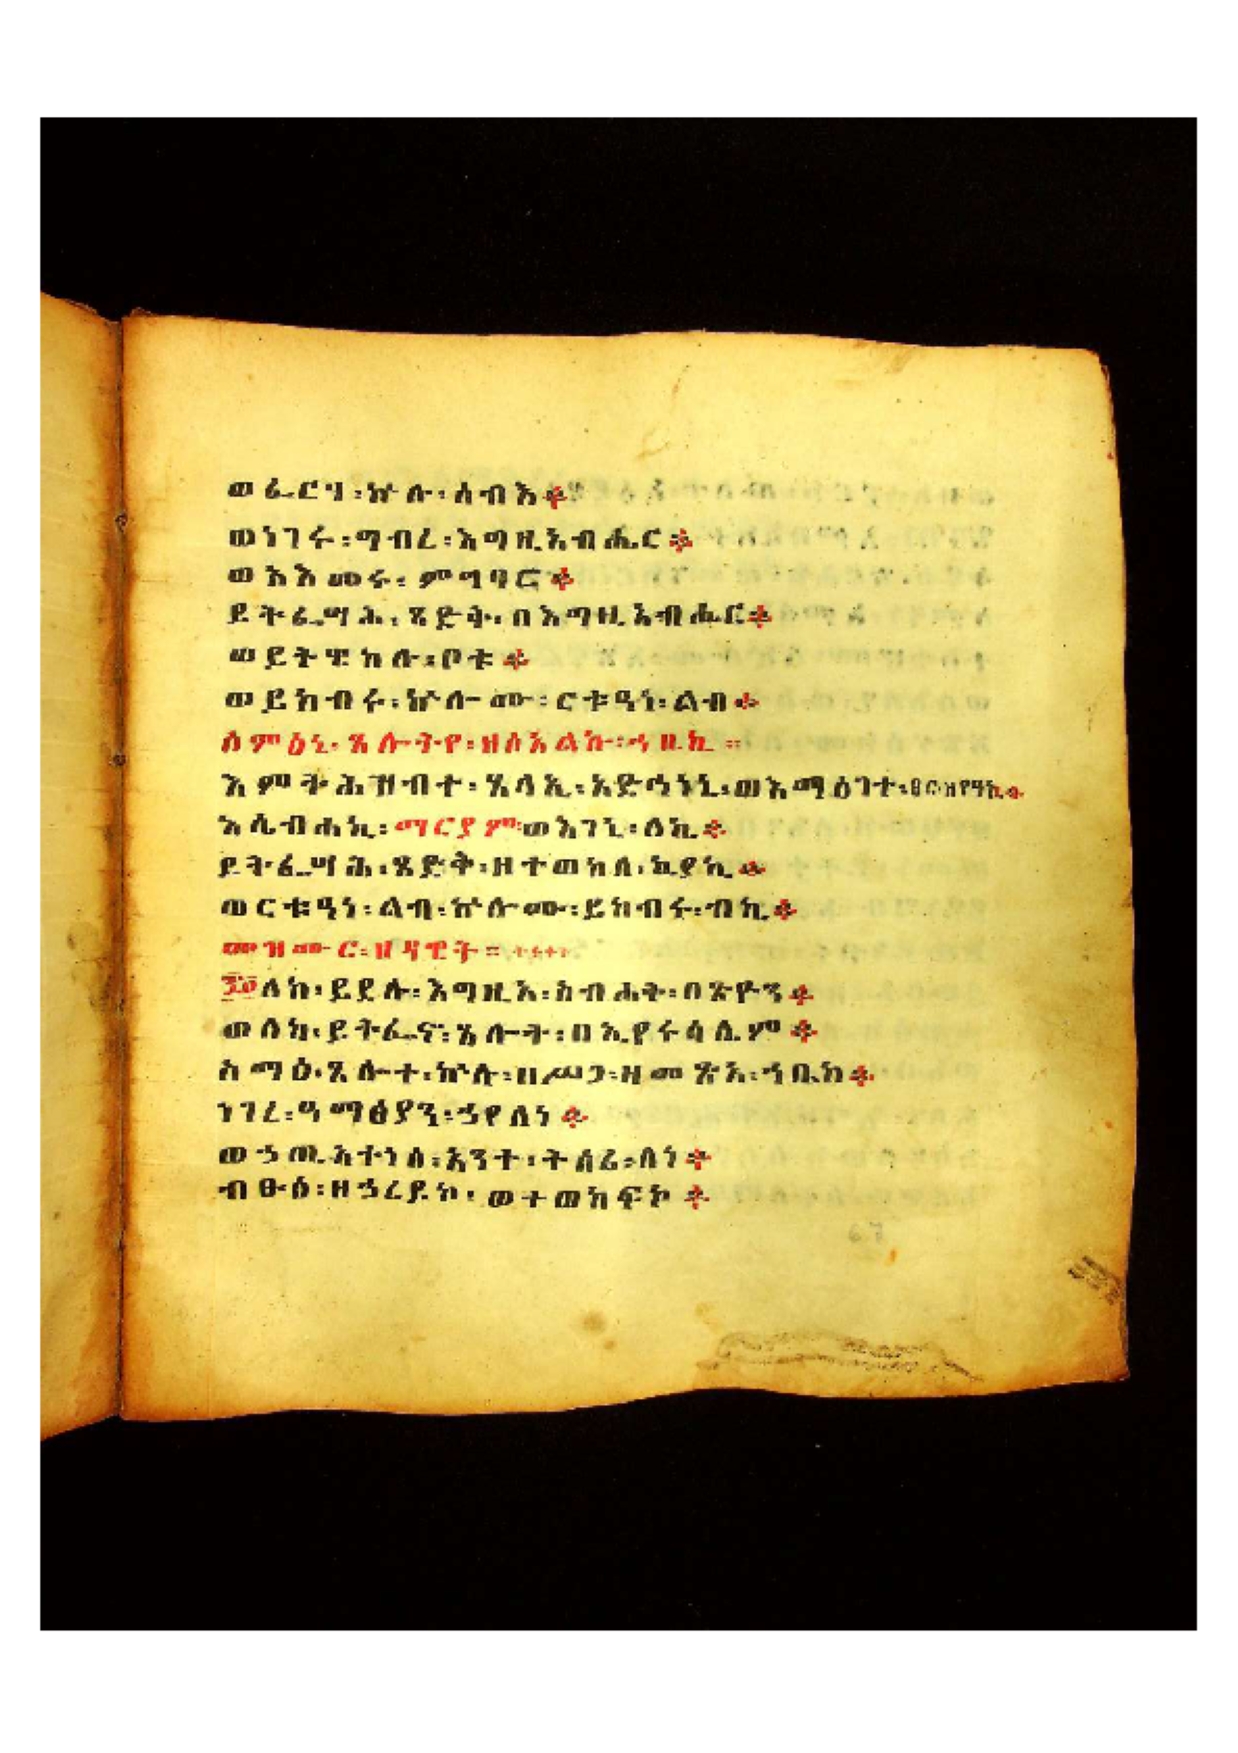 ወፈርሃ፡ኵሉ፡ሰብእ፨
ወነገሩ፡ግብረ፡እግዚአብሔር፨
ወአእመሩ፡ምግባሮ፨
ይትፌሣሕ፡ጻድቅ፡በእግዚአብሔር፨
ወይትዌከል፡ቦቱ፨
ወይከብሩ፡ኵሎሙ፡ርቱዓነ፡ልብ፨
ስምዕኒ፡ጸሎትየ፡ዘሰአልኩ፡ኀቤኪ፡፡
እምትሕዝብተ፡ጸላኢ፡አድኅንኒ፡ወእማዕገተ፡
እሴብሐኪ፡ማርያም፡ወእገኒ፡ለኪ፨
ይትፌሣሕ፡ጻድቅ፡ዘተወከለ፡ኪያኪ፨
ወርቱዓነ፡ልብ፡ኵሎሙ፡ይከብሩ፡ብኪ፨
መዝሙር፡ዘዳዊት፡፡
፷፬ ለከ፡ይደሉ፡እግዚኦ፡ስብሐት፡በጽዮን፨
ወለከ፡ይትፌኖ፡ጸሎት፡በኢየሩሳሌም፨
ስማዕ፡ጸሎተ፡ኵሉ፡ዘሥጋ፡ዘመጽአ፡ኀቤከ፨
ነገረ፡ዓማፅያን፡ኃየለነ፨
ወኃጢአተነሰ፡አንተ፡ትሰሪ፡ለነ፨
ብፁዕ፡ዘኃረይኮ፡ወተወከፍኮ፨